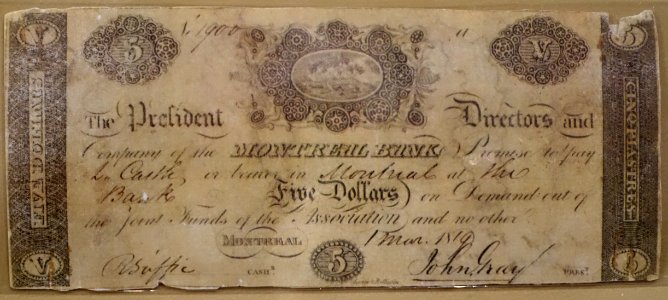 5 № 1900 a V 5
The President Directors and
Company of the MONTREAL BANK Promise to pay
L. Castle or bearer in Montreal at the
Bank Five Dollars on Demand out of
the Joint Funds of the Association and no other
MONTREAL 1 Mar. 1819
CASHR 5 John Gray PREST
FIVE DOLLARS
CINQ PIASTRES
V
V